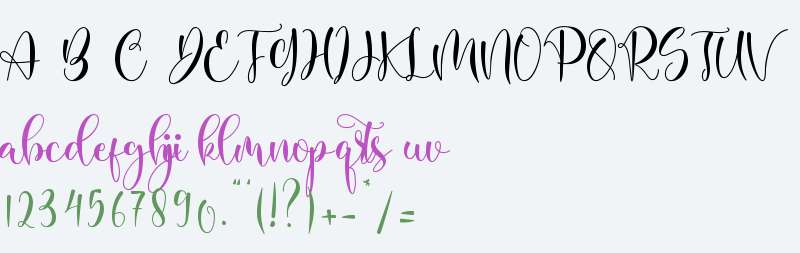 A B C DEFGHIJKLMNOPQRSTUV
abcdefghiji klmnopqrsts uv
1234567890."'(!?)+-*/=